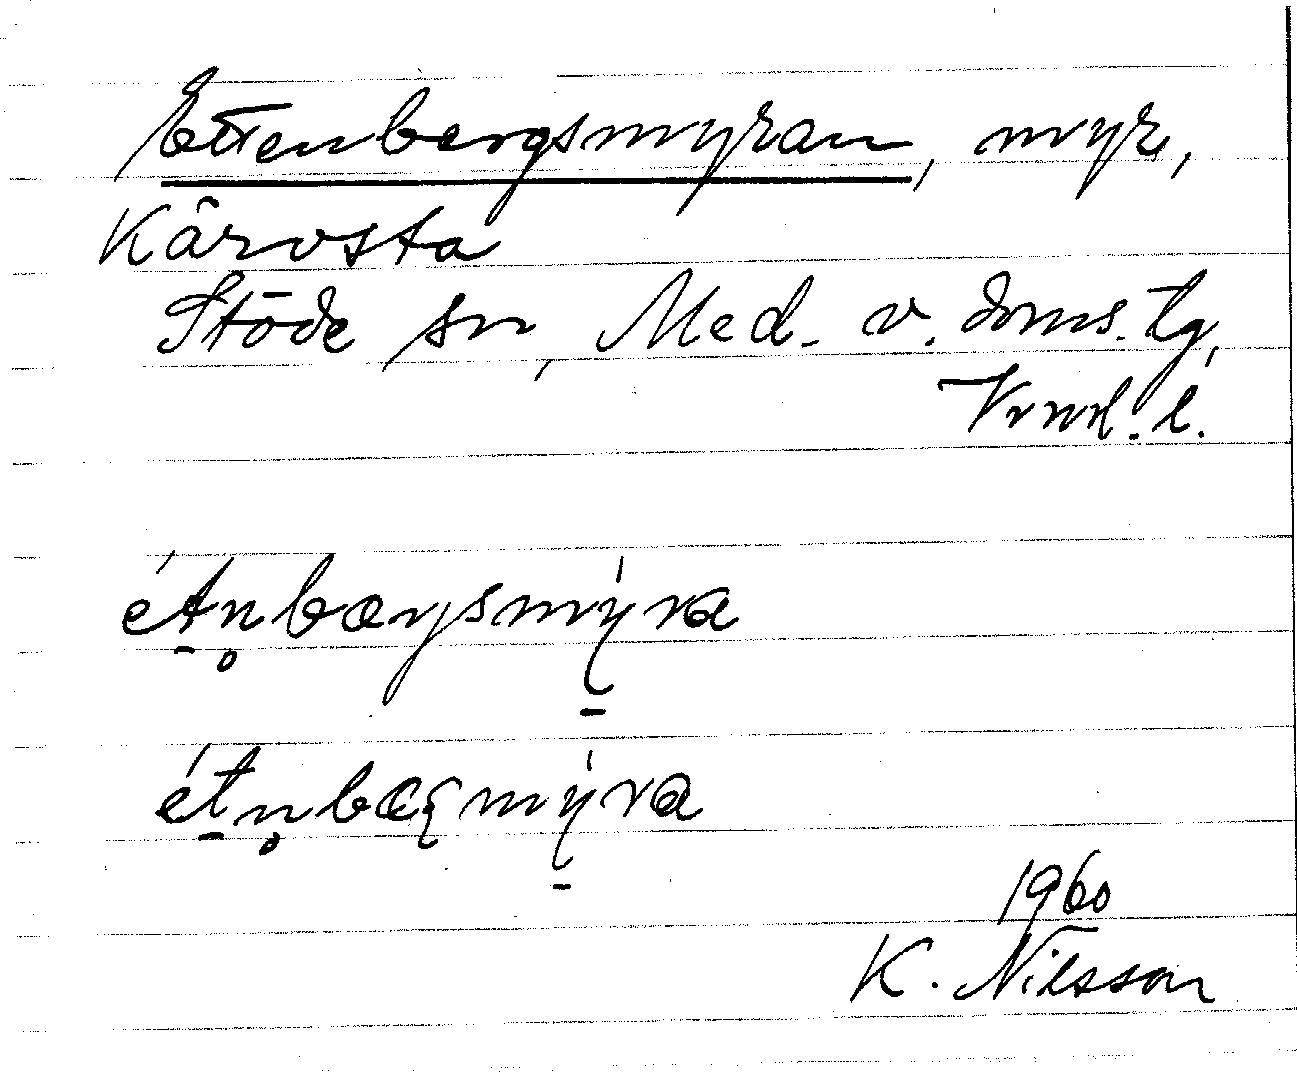 Ettenbergsmyran, myr,
Kärvsta
Stöde sn, Med. v. doms. tg,
Vrnrl. l.
ét̠n̥bæysmý̠ra
ét̠n̥bæʂmý̠ra
1960
K. Nilsson